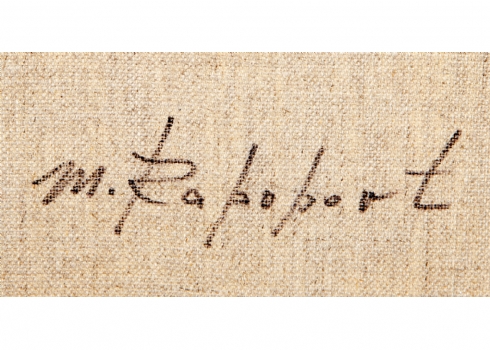 M. Rapoport